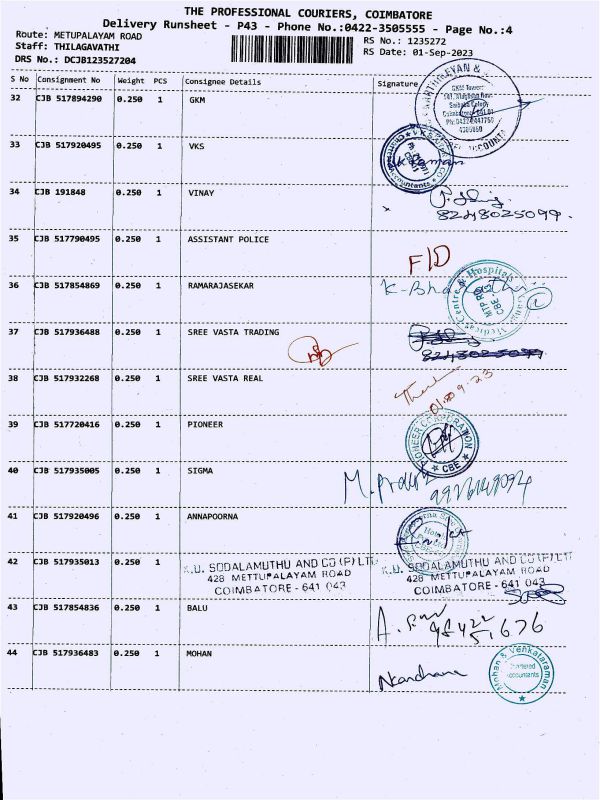 THE PROFESSIONAL COURIERS, COIMBATORE
Delivery Runsheet - P43 - Phone No.:0422-3505555 - Page No.:4
Route: METUPALAYAM ROAD
Staff: THILAGAVATHI
DRS No.: DCJB123527204
RS No.: 1235272
RS Date: 01-Sep-2023
S No Consignment No Weight PCS Consignee Details Signature
32 CJB 517894290 0.250 1 GKM
GKM Tower
33 CJB 517920495 0.250 1 VKS
34 CJB 191848 0.250 1 VINAY
8248025099.
35 CJB 517790495 0.250 1 ASSISTANT POLICE
F/D
36 CJB 517854869 0.250 1 RAMARAJASEKAR
37 CJB 517936488 0.250 1 SREE VASTA TRADING
8248025099
38 CJB 517932268 0.250 1 SREE VASTA REAL
39 CJB 517720416 0.250 1 PIONEER
PIONEER CORPORATION
CBE
40 CJB 517935005 0.250 1 SIGMA
41 CJB 517920496 0.250 1 ANNAPOORNA
42 CJB 517935013 0.250 1
K.U. SODALAMUTHU AND CO (P) LTD
428 METTUPALAYAM ROAD
COIMBATORE - 641 043
K.U. SODALAMUTHU AND CO (P) LTD
428 METTUPALAYAM ROAD
COIMBATORE - 641 043
43 CJB 517854836 0.250 1 BALU
44 CJB 517936483 0.250 1 MOHAN
Mohan & Venkataraman
Chartered
Accountants